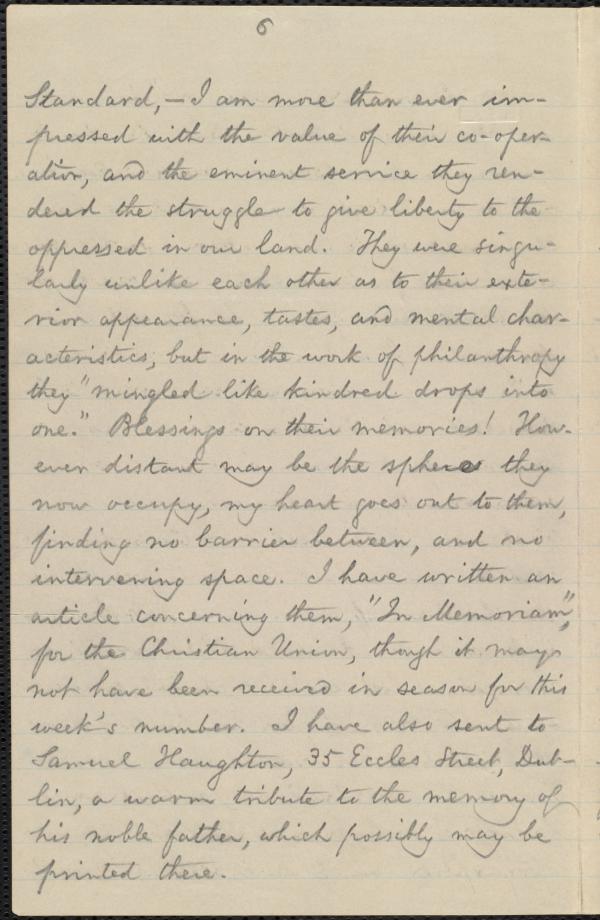 6
Standard,—I am more than ever im-
pressed with the value of their co-oper-
ation, and the eminent service they ren-
dered the struggle to give liberty to the
oppressed in our land. They were singu-
larly unlike each other as to their exte-
rior appearance, tastes, and mental char-
acteristics; but in the work of philanthropy
they "mingled like kindred drops into
one." Blessings on their memories! How-
ever distant may be the spheres they
now occupy, my heart goes out to them,
finding no barrier between, and no
intervening space. I have written an
article concerning them, "In Memoriam",
for the Christian Union, though it may
not have been received in season for this
week's number. I have also sent to
Samuel Haughton, 35 Eccles Street, Dub-
lin, a warm tribute to the memory of
his noble father, which possibly may be
printed there.